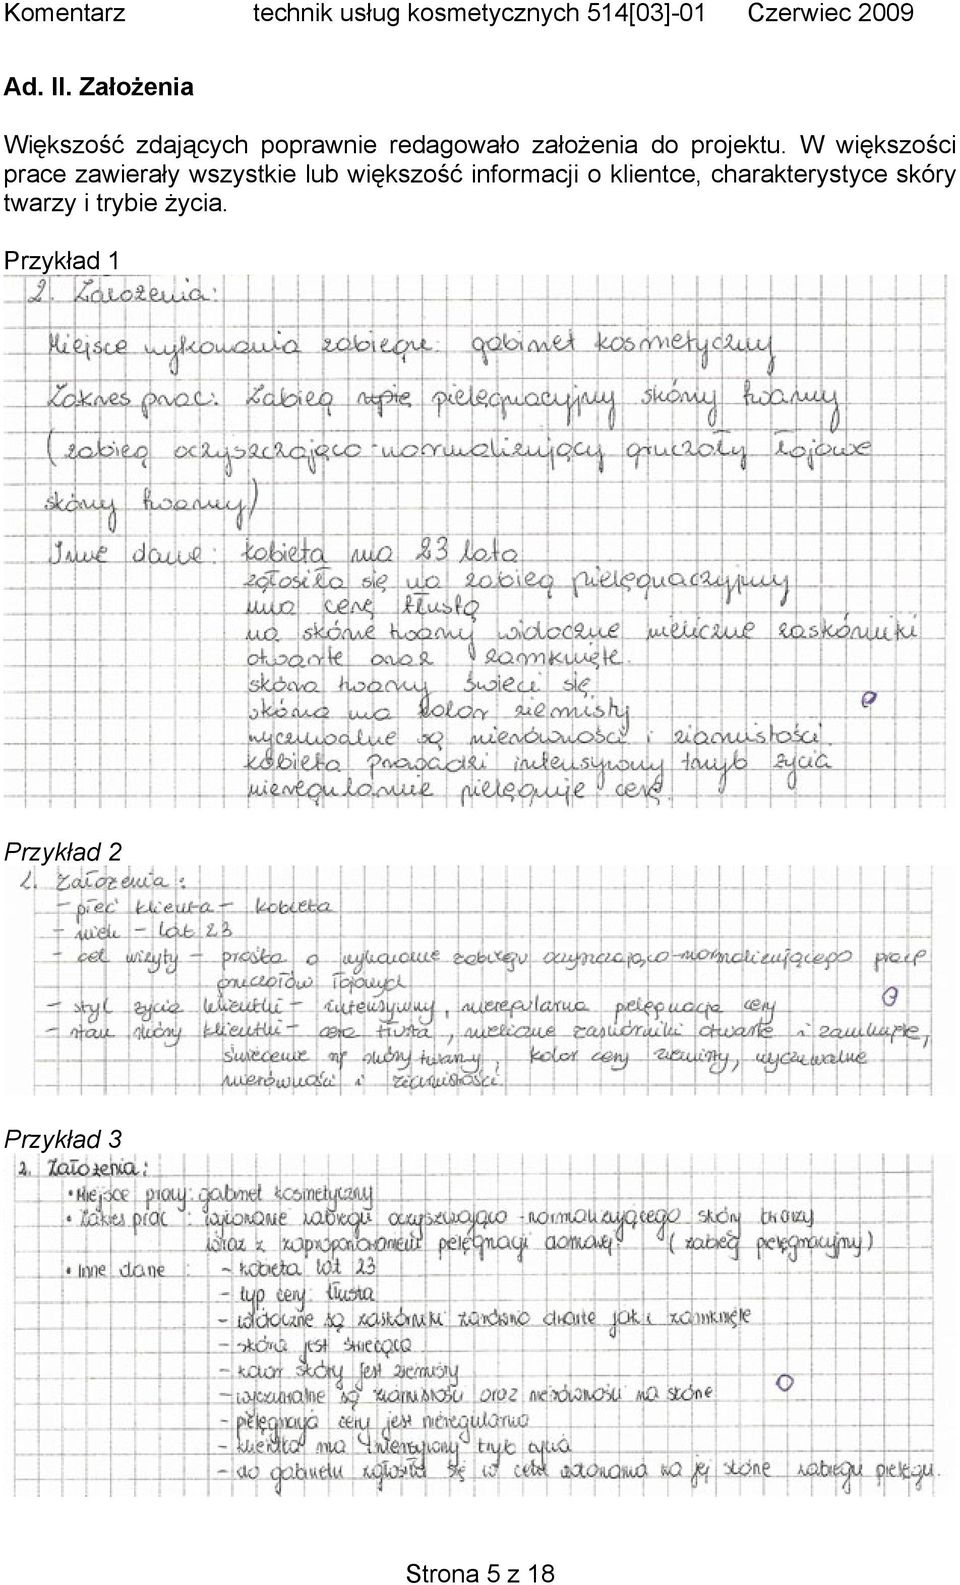 Komentarz technik usług kosmetycznych 514[03]-01 Czerwiec 2009
Ad. II. Założenia
Większość zdających poprawnie redagowało założenia do projektu. W większości
prace zawierały wszystkie lub większość informacji o klientce, charakterystyce skóry
twarzy i trybie życia.
Przykład 1
2. Założenia:
Miejsce wykonania zabiegu: gabinet kosmetyczny
Zakres prac: Zabieg pielęgnacyjny skóry twarzy
(zabieg oczyszczająco-normalizujący gruczoły łojowe
skóry twarzy)
Inne dane: kobieta ma 23 lata
zgłosiła się na zabieg pielęgnacyjny
ma cerę tłustą
na skórze twarzy widoczne nieliczne zaskórniki
otwarte oraz zamknięte.
skóra twarzy świeci się.
skóra ma kolor ziemisty
wyczuwalne są nierówności i ziarnistości.
kobieta prowadzi intensywny tryb życia
nieregularnie pielęgnuje cerę.
Przykład 2
2. Założenia:
- płeć klienta - kobieta
- wiek - lat 23
- cel wizyty - prośba o wykonanie zabiegu oczyszczająco-normalizującego pracę
gruczołów łojowych
- styl życia klientki - intensywny, nieregularna pielęgnacja cery
- stan skóry klientki - cera tłusta, nieliczne zaskórniki otwarte i zamknięte,
świecenie się skóry twarzy, kolor cery ziemisty, wyczuwalne
nierówności i ziarnistości
Przykład 3
2. Założenia:
• Miejsce pracy: gabinet kosmetyczny
• Zakres prac: wykonanie zabiegu oczyszczająco-normalizującego skóry twarzy
wraz z zaproponowaniem pielęgnacji domowej. (zabieg pielęgnacyjny)
• Inne dane: - kobieta lat 23
- typ cery: tłusta
- widoczne są zaskórniki zarówno otwarte jak i zamknięte
- skóra jest świecąca
- kolor skóry jest ziemisty
- wyczuwalne są ziarnistości oraz nierówności na skórze
- pielęgnacja cery jest nieregularna
- klientka ma intensywny tryb życia
- do gabinetu zgłosiła się w celu wykonania na jej skórze zabiegu pielęgn.
Strona 5 z 18